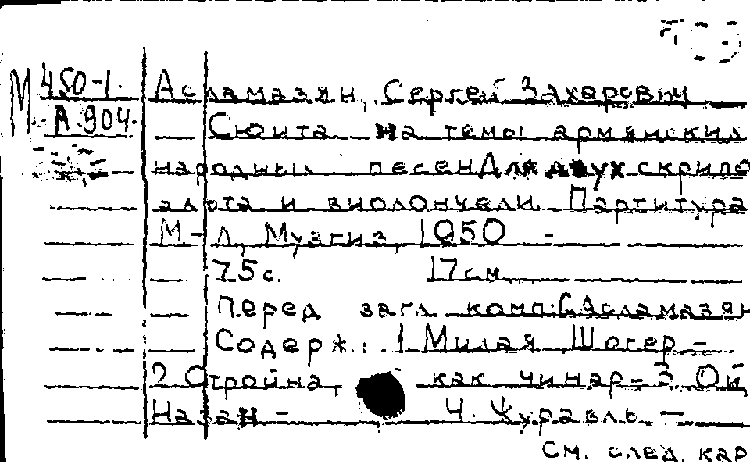 М 450-1. Асламазян, Сергей Захарович
А.904. Сюита на темы армянских
народных песен Для двух скрипо
альта и виолончели. Партитура
М-Л, Музгиз, 1950 -
75с. 17см.
Перед загл. комп: С Асламазян
Содерж.: 1 Милая Шогер -
2 Стройна, как чинар - 3. Ой
Назан - 4. Журавль. -
См. след. кар